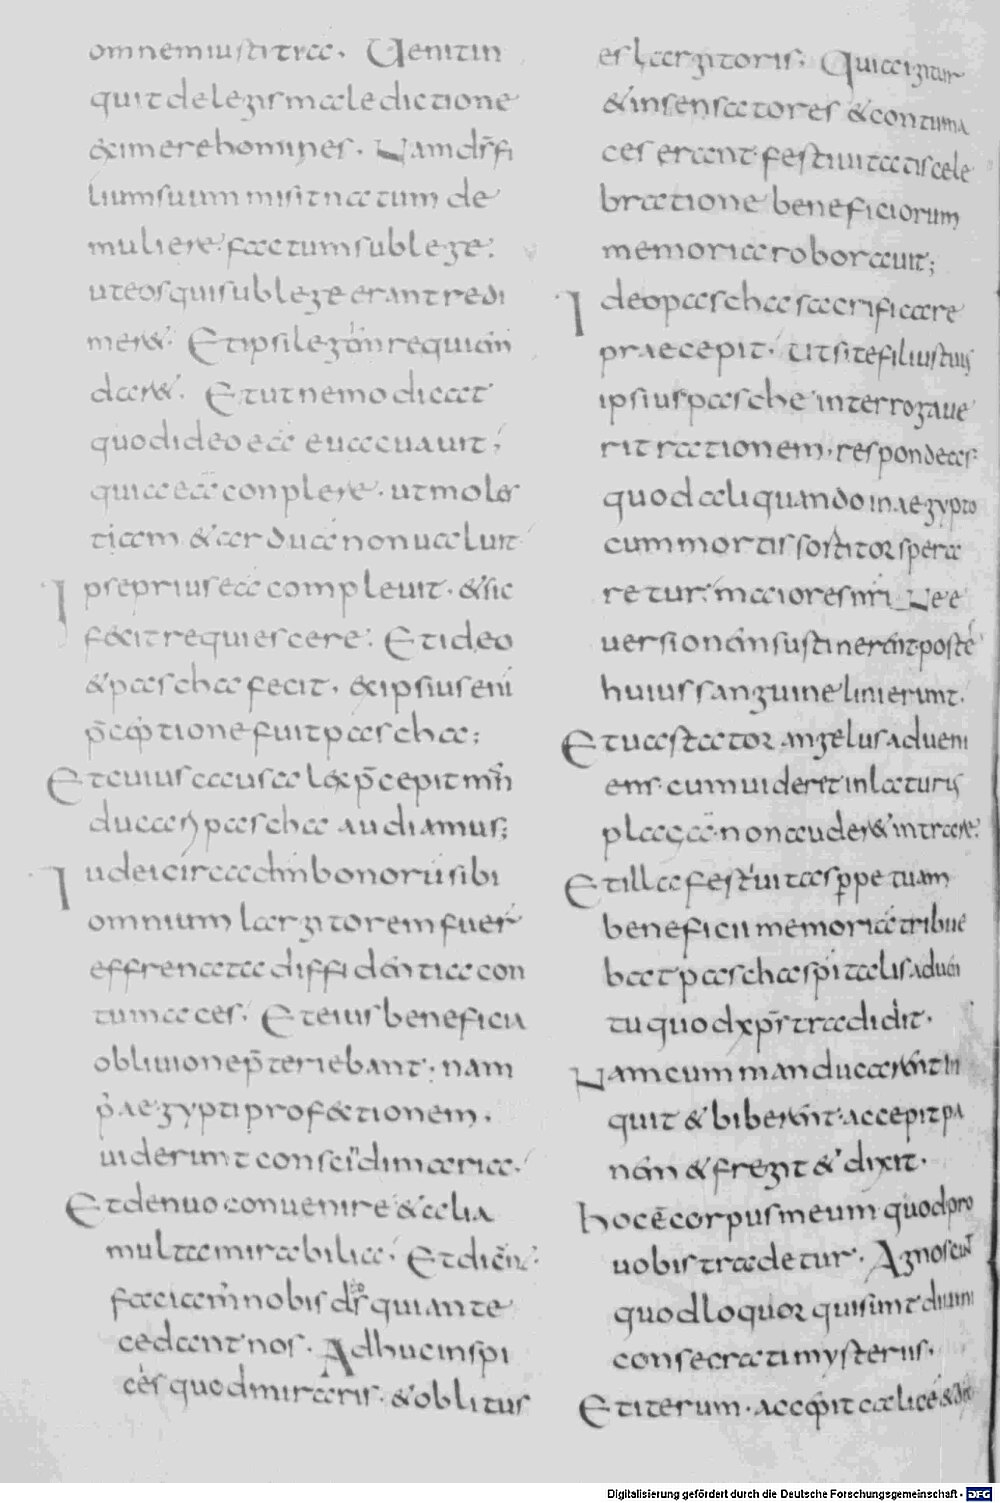 omnem iustitiae. Uenit in
quit de legis maledictione
eximere homines. Nam ds fi
lium suum misit natum de
muliere. factum sub lege.
ut eos qui sub lege erant redi
meret. Et ipsi legem requiem
daret. Et ut nemo dicat
quod ideo ea euacuauit,
quia ea conplere. ut moles
tiam et arduam non ualuit
Ipse prius ea compleuit. et sic
fecit requiescere. Et ideo
et pascha fecit. et ipsius eni
pceptione fuit pascha;
Et cuius causa lex pcepit
ducam pascha audiamus;
Iudei circa dm bonorum sibi
omnium largitorem fuer
effrenata diffidentia con
tumaces. Et eius beneficia
obliuione pteriebant. nam
p aegypti profectionem.
uiderunt
Et denuo conuenire et alia
multa mirabilia. Et dicent.
faciam nobis ds qui ante
cedant nos. Adhuc inspi
ces quod miraris. et oblitus
es largitoris. Qui igitur
et insensatores et contuma
ces erant. festiuitatis cele
bratione beneficiorum
memoria roborauit;
Ideo pascha sacrificare
praecepit. ut si te filius tuus
ipsius pasche interrogaue
rit rationem. respondeas
quod aliquando in aegypto
cum mortis sortitor spera
retur. maiores nri Ne e
uersionem sustinerent poste
huius sanguine linierunt.
Et uastator angelus adueni
ens. cum uideret in
non auderet intrare.
Et illa festiuitas ppetuam
beneficii memoria tribue
bat pascha spitalis aduen
tu quod xps tradidit.
Nam cum manducarent in
quit et biberent. accepit pa
nem et fregit et dixit.
hoc e corpus meum quod pro
uobis tradetur. Agnoscunt
quod loquor qui sunt diuini
consecrati mysterii.
Et iterum. accepit calice et dix
Digitalisierung gefördert durch die Deutsche Forschungsgemeinschaft - DFG